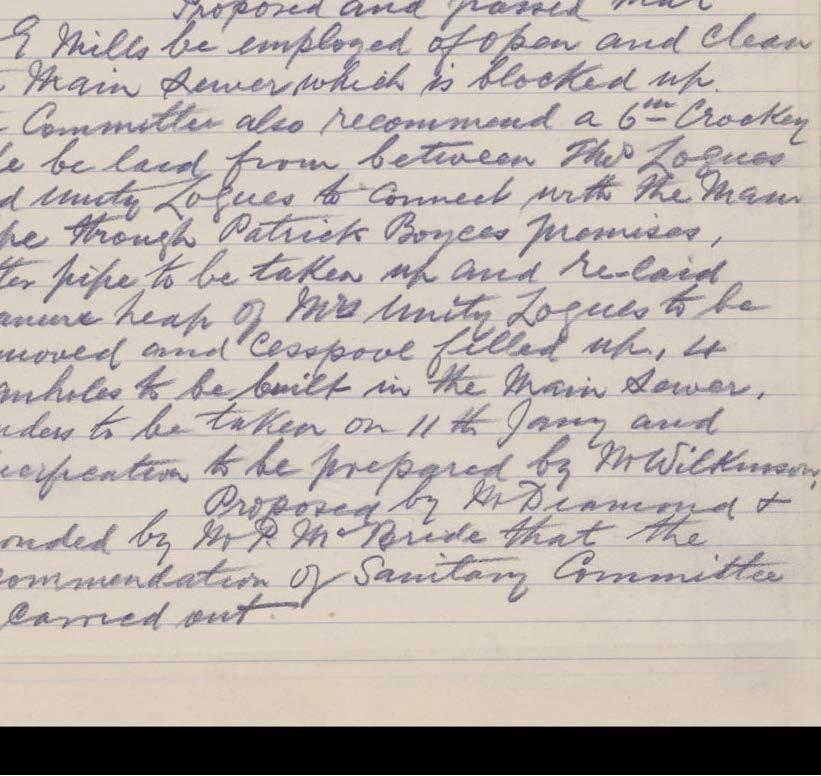 Proposed and passed that
E Mills be employed of open and clean
Main Sewer which is blocked up.
Committee also recommend a 6 in Crockey
be laid from between Thos Logues
d Unity Logues to connect with the Main
pe through Patrick Boyces premises,
ter pipe to be taken up and re-laid
anure heap of Mrs Unity Logues to be
moved and cesspool filled up, 4
anholes to be built in the Main Sewer,
nders to be taken on 11th Jany and
ecification to be prepared by Mr Wilkinson.
Proposed by Mr Diamond &
onded by Mr P. McBride that the
commendation of Sanitary Committee
carried out